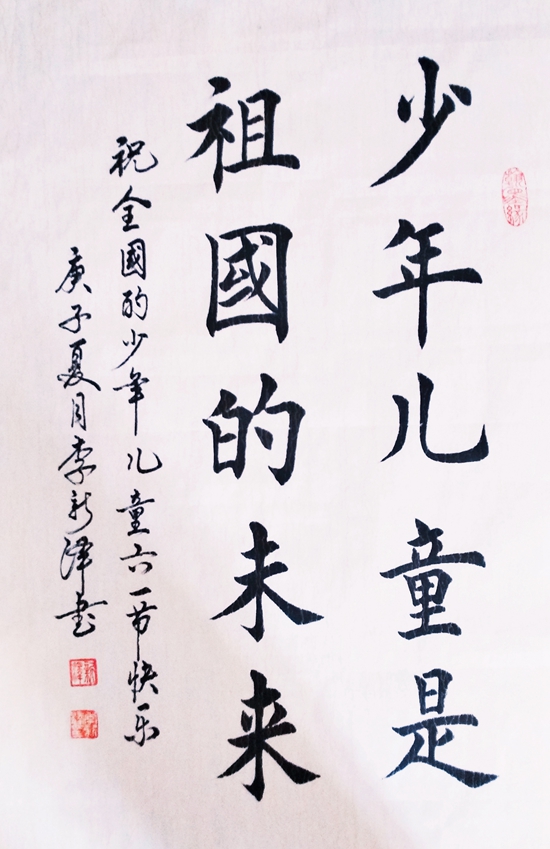 少年儿童是
祖國的未来
祝全國的少年儿童六一节快乐
庚子夏月李新泽书